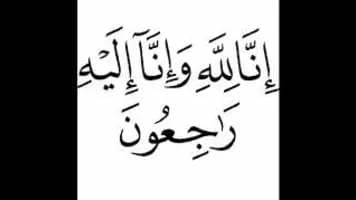 إِنَّا لِلَّٰهِ وَإِنَّآ إِلَيْهِ
رَاجِعُونَ